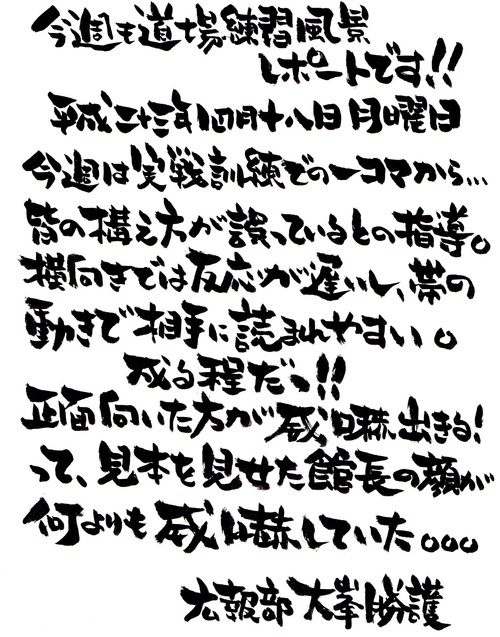 今週も道場練習風景
レポートです!!
平成二十三年四月十八日月曜日
今週は実戦訓練での一コマから…
皆の構え方が誤っているとの指導。
横向きでは反応が遅いし、帯の
動きで相手に読まれやすい。
成る程だっ!!
正面向いた方が威嚇出きる!
って、見本を見せた館長の顔が
何よりも威嚇していた。。。
広報部 大峯勝護